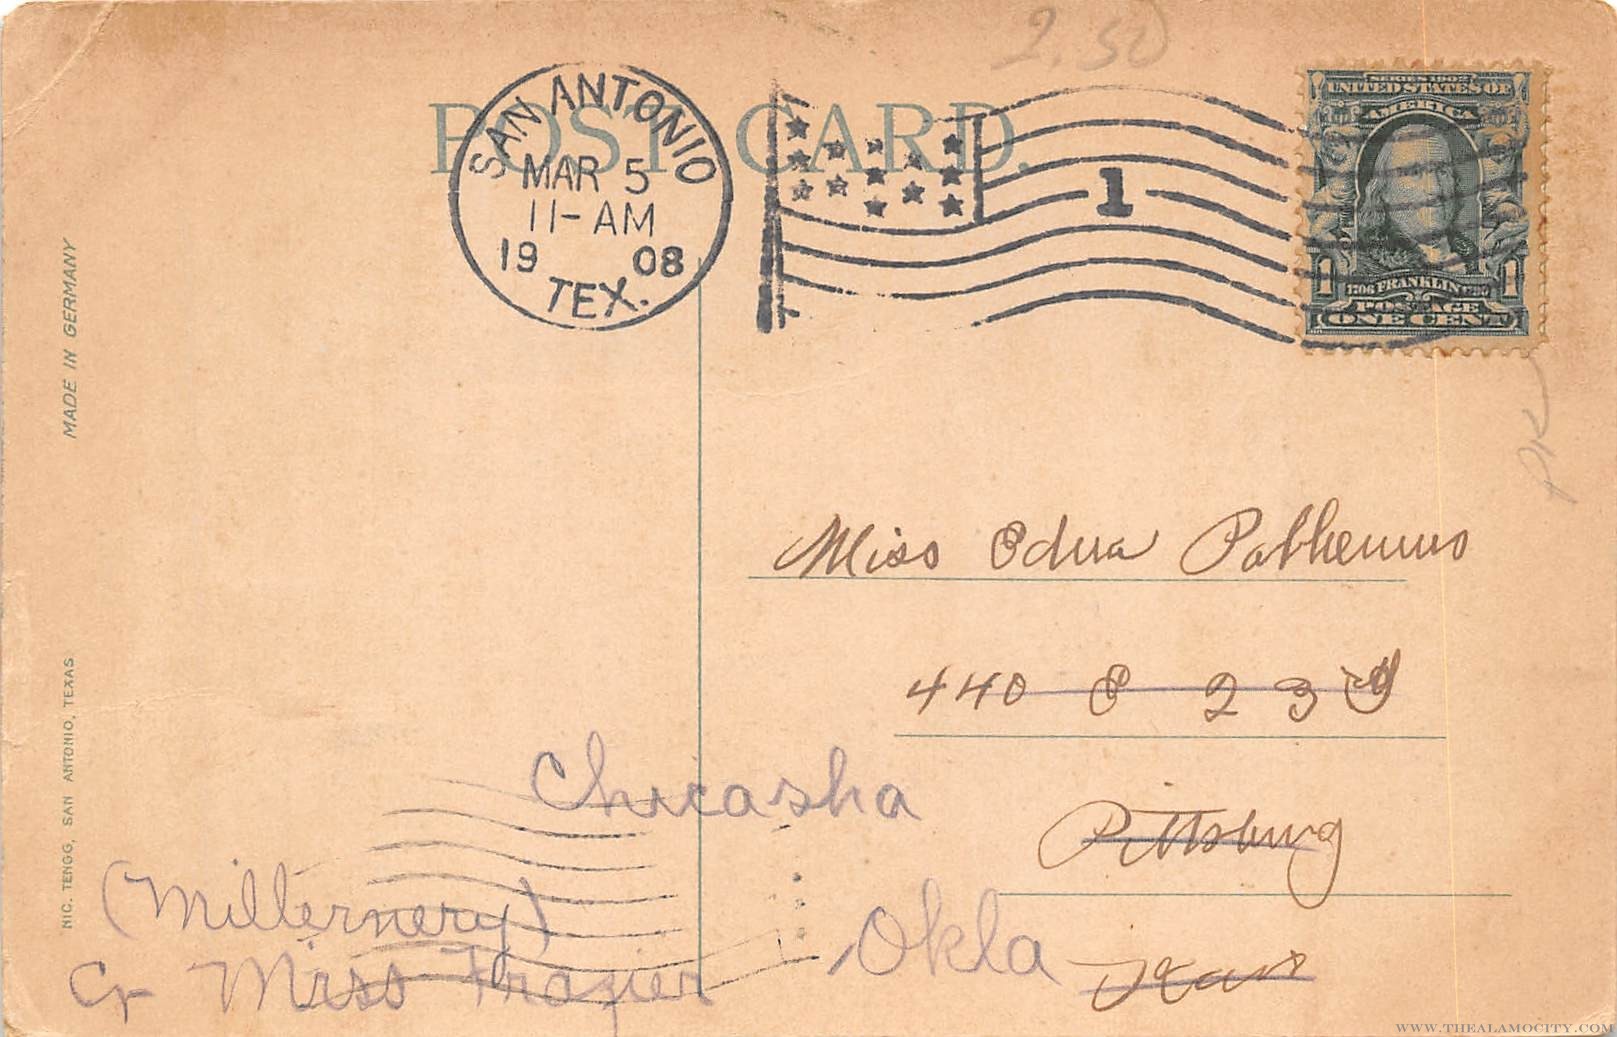 2.50
POST CARD.
SAN ANTONIO
MAR 5
11-AM
19 08
TEX.
1
SERIES 1902
UNITED STATES OF
AMERICA
1 1
1706 FRANKLIN 1790
POSTAGE
ONE CENT
MADE IN GERMANY
NIC. TENGG, SAN ANTONIO, TEXAS
Miss Edna
440 E 23rd
Pittsburg
Texas
Chicasha
Okla
(Millernery)
Miss Frazier
WWW.THEALAMOCITY.COM